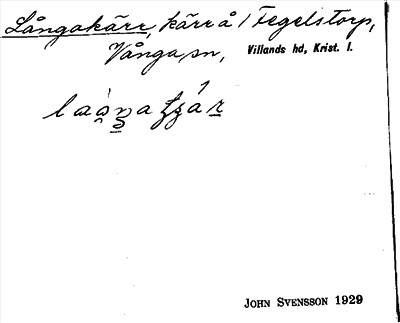 Långakärr, kärr å Tegelstorp,
Vånga sn, Villands hd, Krist. l.
John Svensson 1929